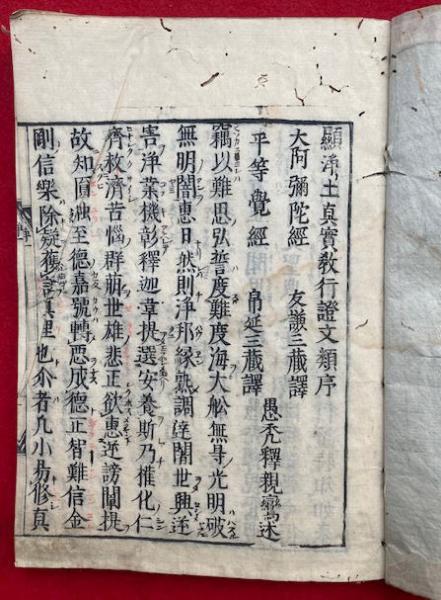 顯淨土真實敎行證文類序
大阿彌陀經 友謙三藏譯
平等覺經 帛延三藏譯
愚禿釋親鸞述
竊以難思弘誓度難度海大舩無导光明破
無明闇惠日然則淨邦緣熟調達闍世興逆
害淨業機彰釋迦韋提選安養斯乃權化仁
齊救濟苦惱群萠世雄悲正欲惠逆謗闡提
故知圓融至德嘉號轉惡成德正智難信金
剛信樂除疑獲證真理也尒者凡小易修真